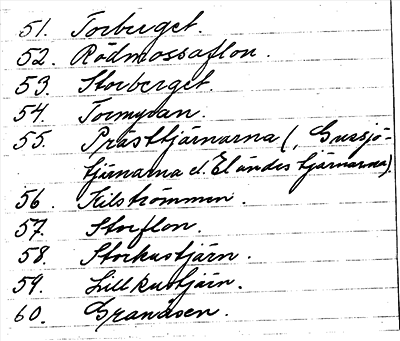 51. Torberget.
52. Rödmossaflon.
53. Storberget.
54. Tormyran.
55. Prästtjärnarna (, Gussjö-
tjärnarna el. Eländestjärnarna).
56. Kilströmmen.
57. Storflon.
58. Storkustjärn.
59. Lillkustjärn.
60. Granåsen.